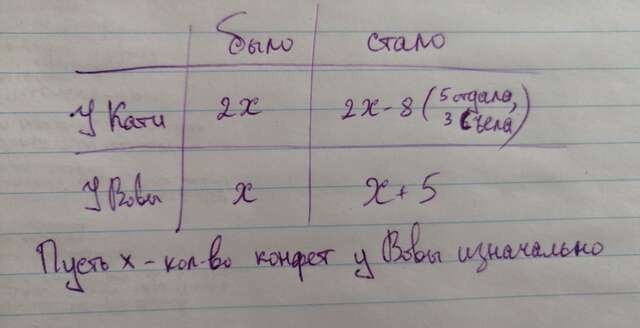 было стало
У Кати 2x 2x-8 (5 отдала, 3 съела)
У Вовы x x+5
Пусть x - кол-во конфет у Вовы изначально